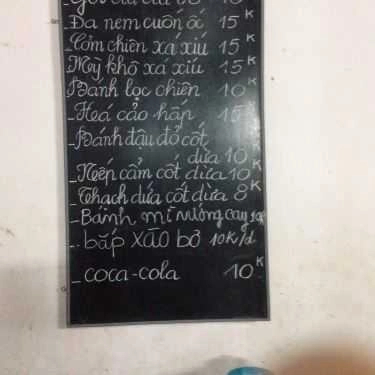 _Da nem cuốn ốc 15K
_Cơm chiên xá xíu 15K
_Mỳ khô xá xíu 15K
_Bánh lọc chiên 10K
_Há cảo hấp 15K
_Bánh đậu đỏ cốt
dừa 10K
_Nếp cẩm cốt dừa 10K
_Thạch dừa cốt dừa 8K
_Bánh mì nướng cay 10K
_bắp XÀO bơ 10K/d
_COCA-COLA 10K